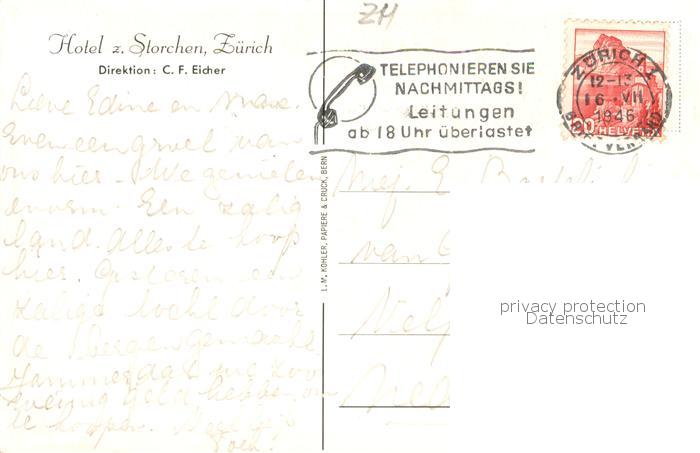 ZH
Hotel z. Storchen, Zürich
Direktion: C. F. Eicher
TELEPHONIEREN SIE
NACHMITTAGS!
Leitungen
ab 18 Uhr überlastet
ZÜRICH 1
12-13
16. VII
1946
BRIEFVERSAND
20 HELVETIA
Lieve Edine en Max.
Even een groet van
ons hier. We genieten
enorm. Een zalig
land. Alles te koop
hier. Gisteren een
zalige tocht door
de bergen gemaakt.
Jammer dat we zoo
weinig geld hebben om
te koopen.
L. M. KOHLER, PAPIERE & DRUCK, BERN
Mej. E.
van
privacy protection
Datenschutz